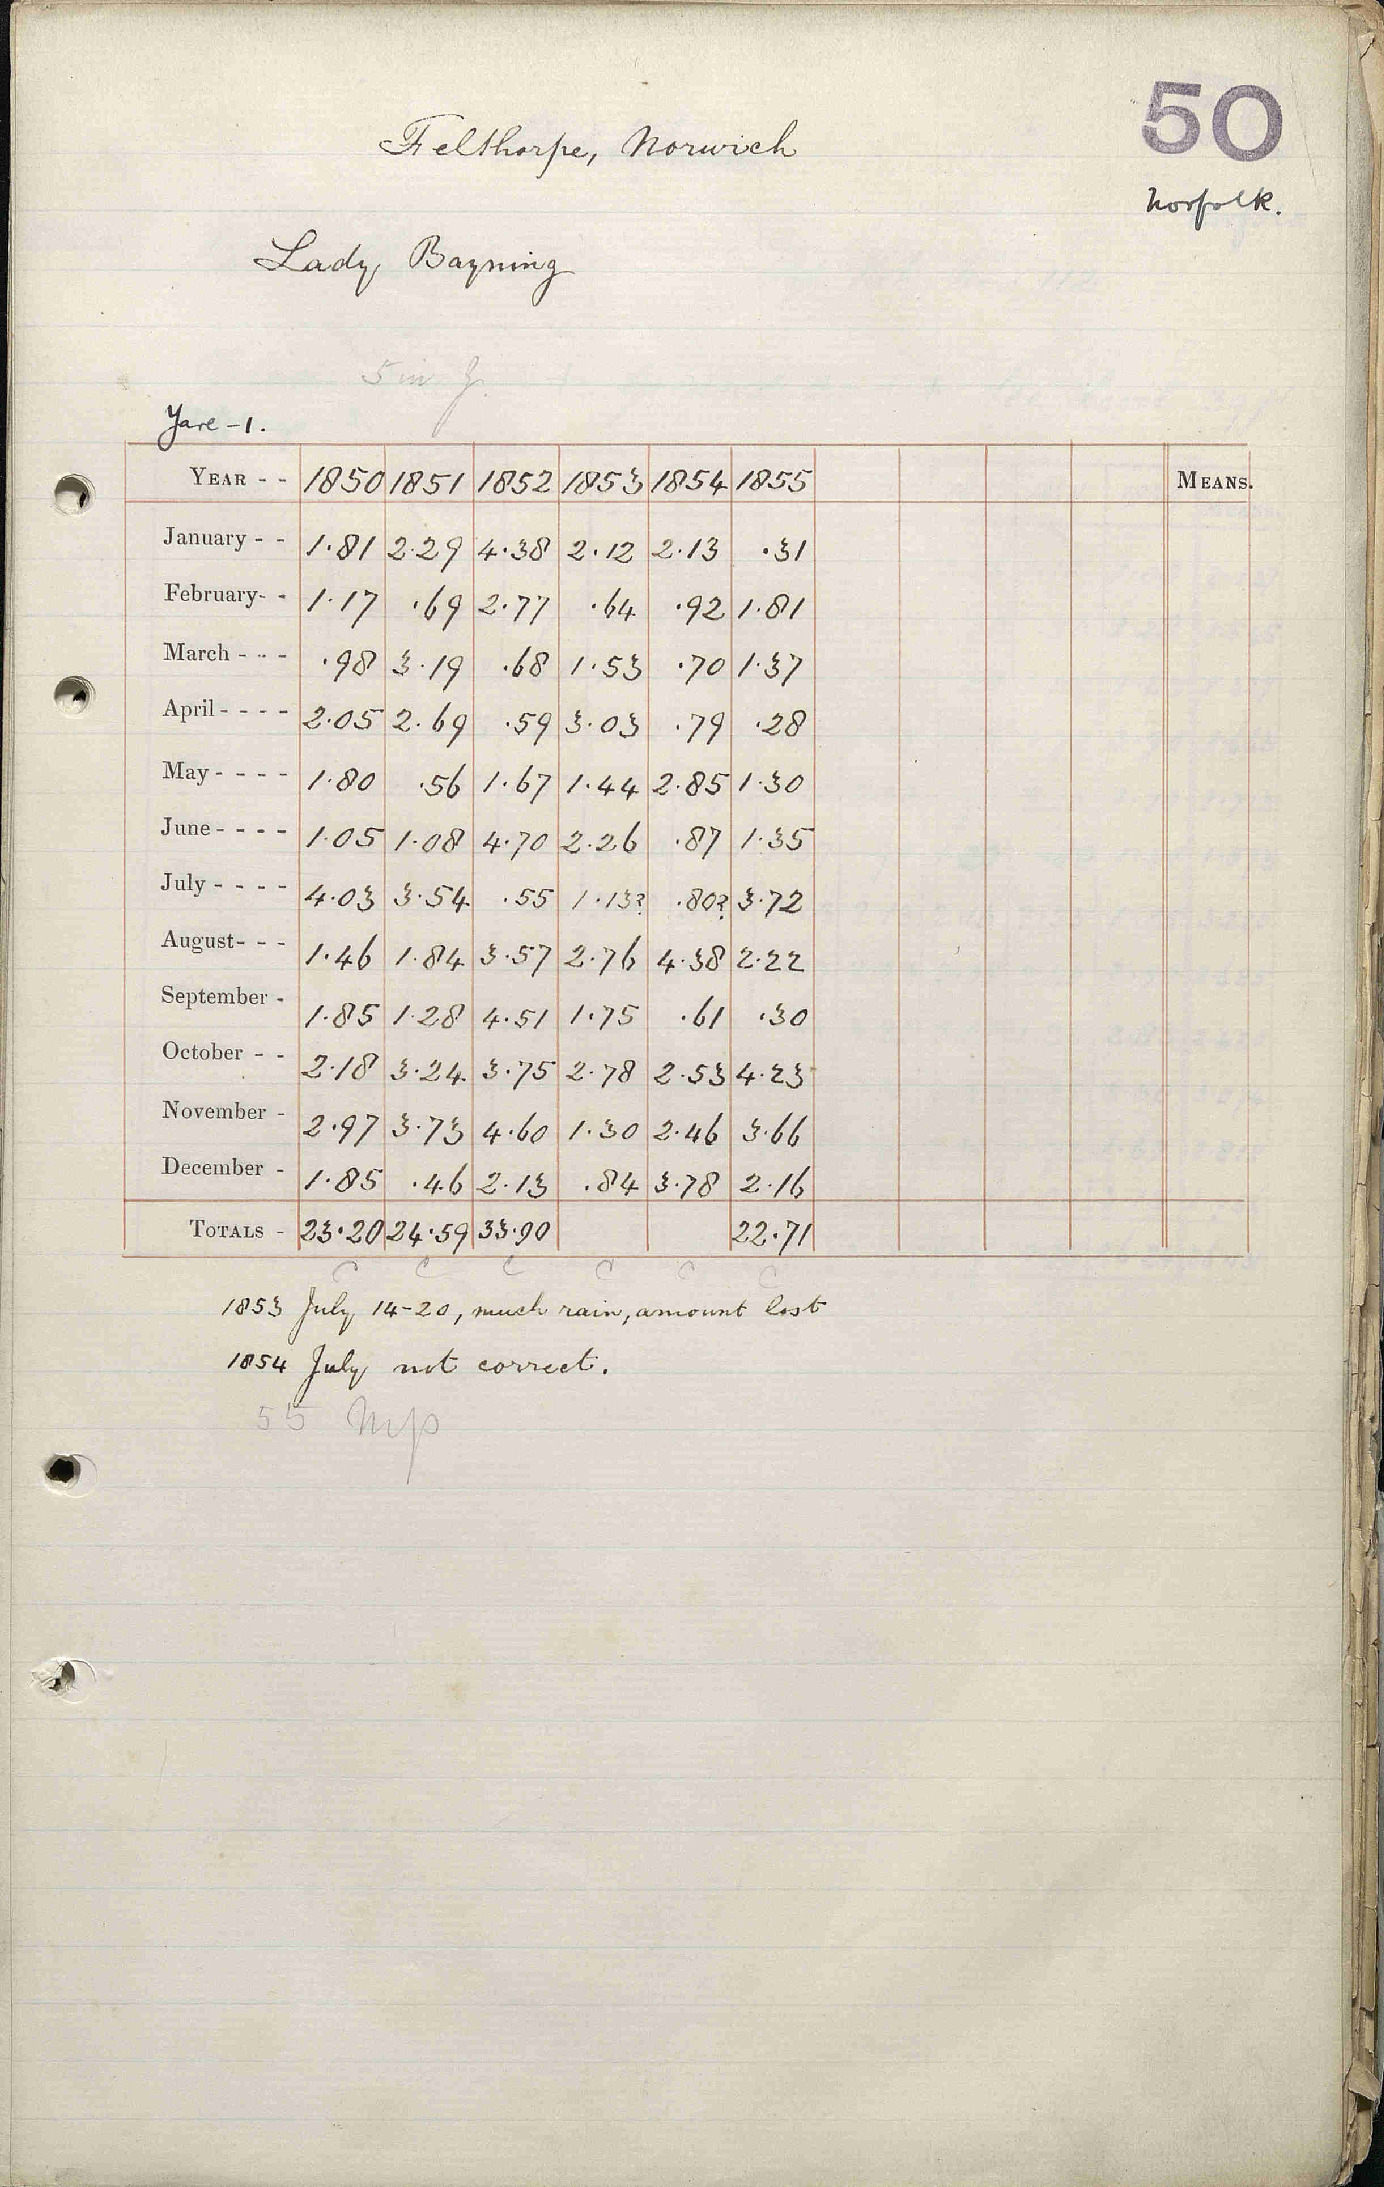 50
Felthorpe, Norwich
Norfolk.
Lady Bayning
5 in g.
Yare - 1.
YEAR - - 1850 1851 1852 1853 1854 1855 MEANS.
January - - 1.81 2.29 4.38 2.12 2.13 .31
February- - 1.17 .69 2.77 .64 .92 1.81
March - - - .98 3.19 .68 1.53 .70 1.37
April - - - - 2.05 2.69 .59 3.03 .79 .28
May - - - - 1.80 .56 1.67 1.44 2.85 1.30
June - - - - 1.05 1.08 4.70 2.26 .87 1.35
July - - - - 4.03 3.54 .55 1.13? .80? 3.72
August- - - 1.46 1.84 3.57 2.76 4.38 2.22
September - 1.85 1.28 4.51 1.75 .61 .30
October - - 2.18 3.24 3.75 2.78 2.53 4.23
November - 2.97 3.73 4.60 1.30 2.46 3.66
December - 1.85 .46 2.13 .84 3.78 2.16
TOTALS - 23.20 24.59 33.90 22.71
C C C C C C
1853 July 14-20, much rain, amount lost
1854 July not correct.
55